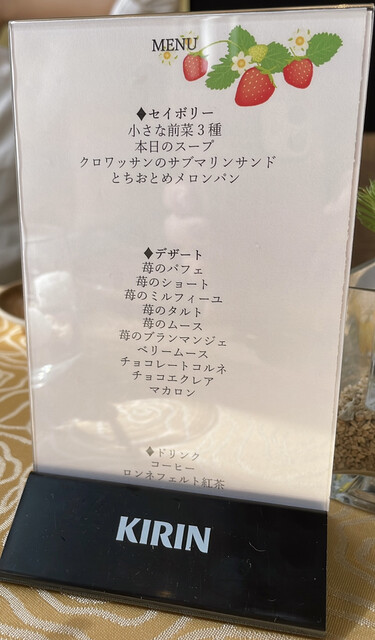 MENU
◆セイボリー
小さな前菜3種
本日のスープ
クロワッサンのサブマリンサンド
とちおとめメロンパン
◆デザート
苺のパフェ
苺のショート
苺のミルフィーユ
苺のタルト
苺のムース
苺のブランマンジェ
ベリームース
チョコレートコルネ
チョコエクレア
マカロン
◆ドリンク
コーヒー
ロンネフェルト紅茶
KIRIN